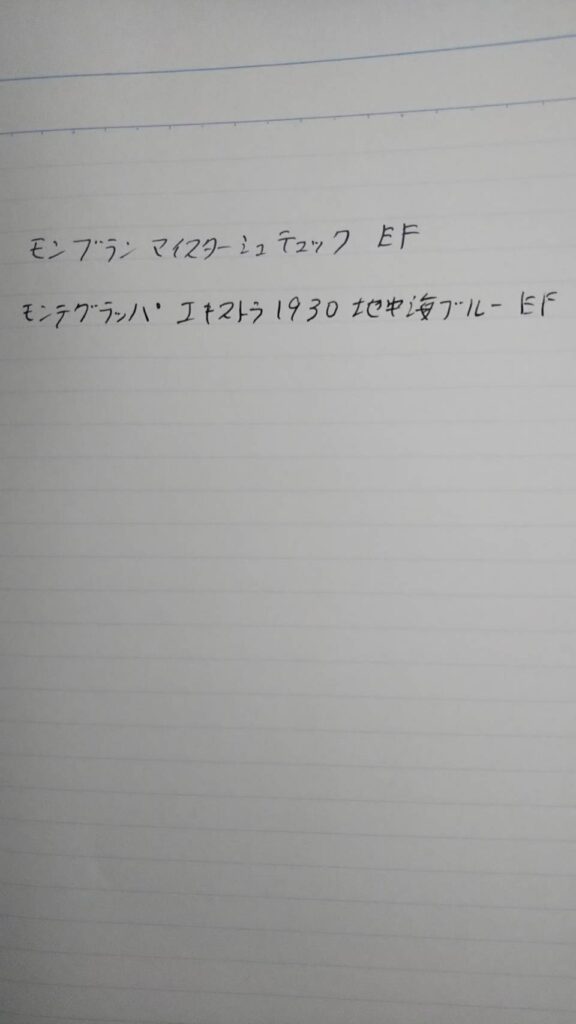 モンブラン マイスターシュテュック EF
モンテグラッパ エキストラ1930 地中海ブルー EF